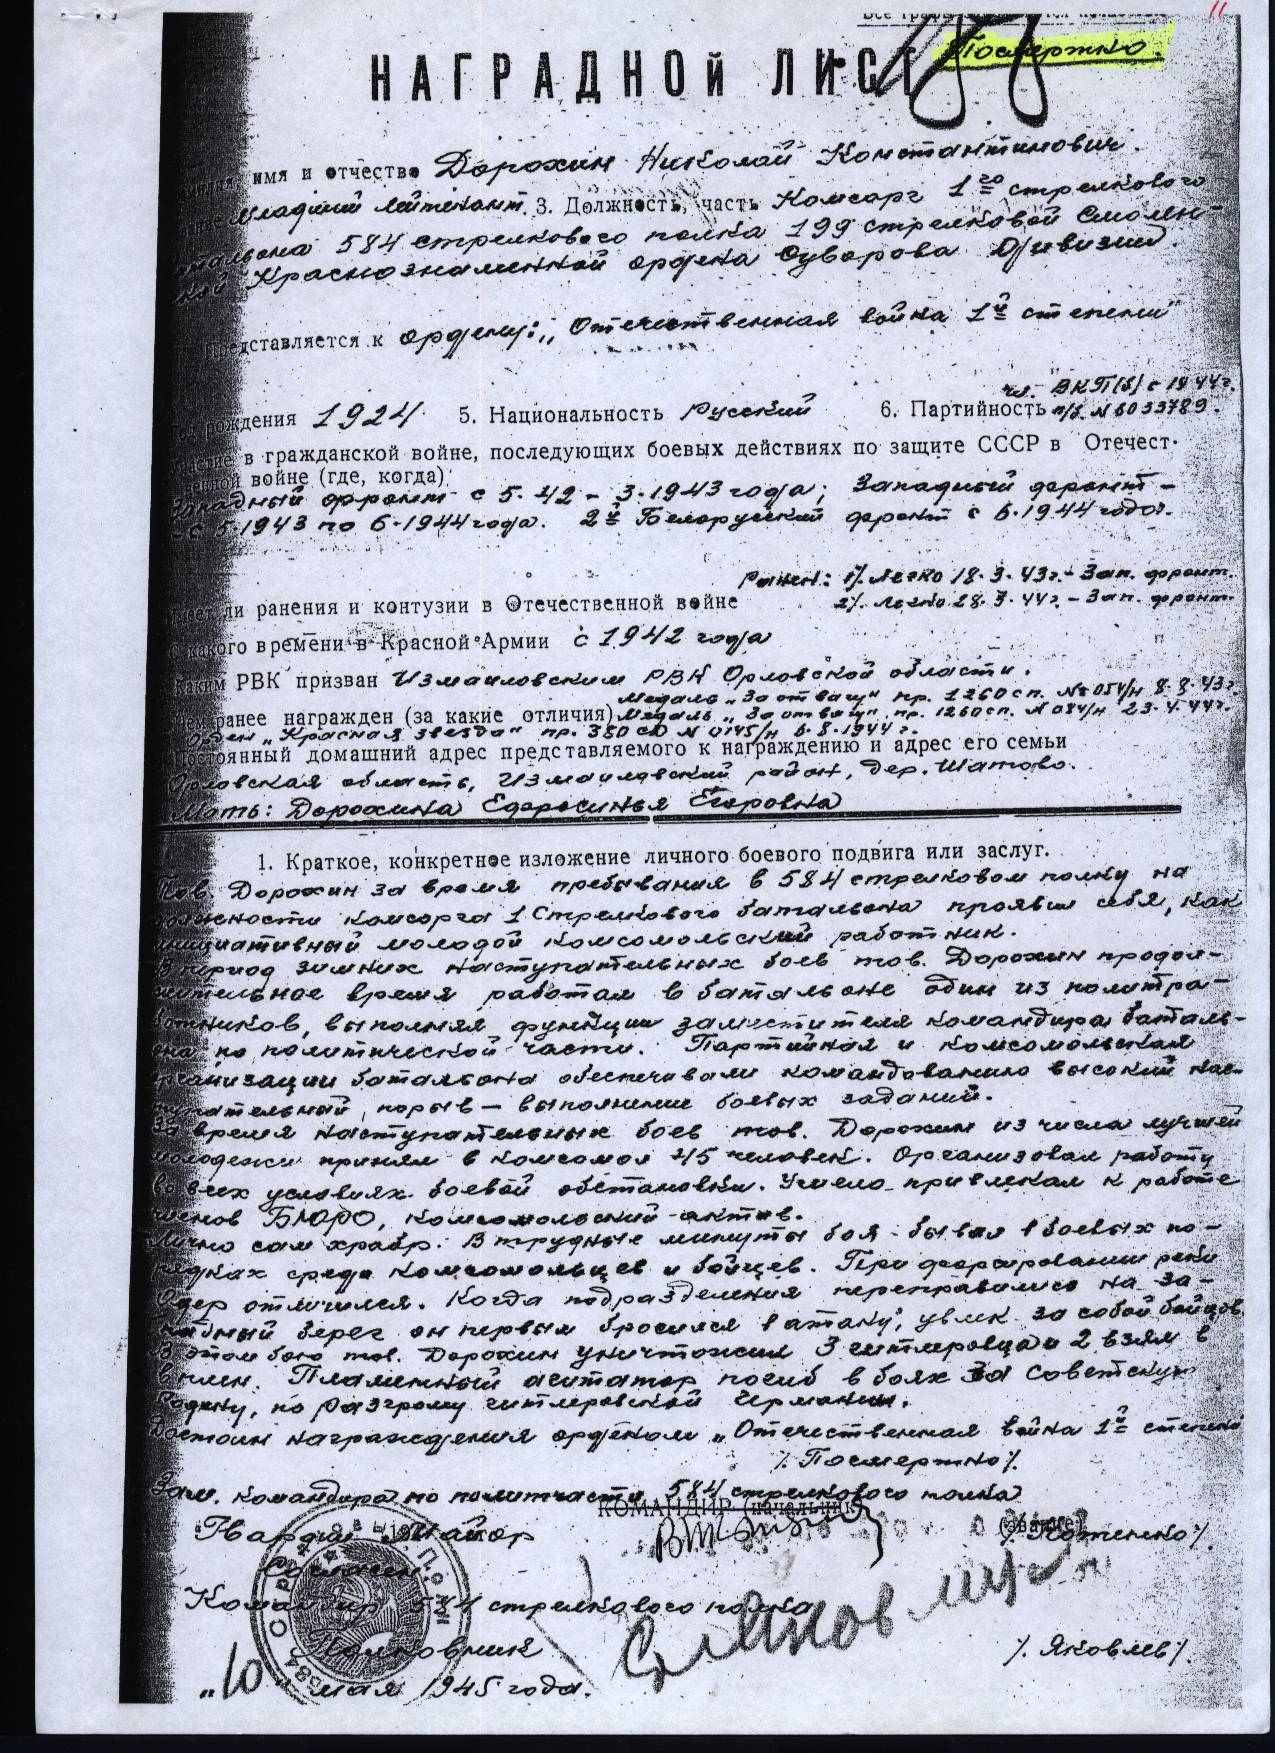 Посмертно.
НАГРАДНОЙ ЛИСТ
имя и отчество Дорохин Николай Константинович.
Младший лейтенант. 3. Должность, часть Комсорг 1го стрелкового
584 стрелкового полка 199 стрелковой Смолен-
Краснознаменной ордена Суворова Дивизии.
Представляется к ордену: „Отечественная война 1й степени"
чл. ВКП(б) с 1944г.
рождения 1924. 5. Национальность Русский 6. Партийность п/б. № 6033789.
в гражданской войне, последующих боевых действиях по защите СССР в Отечест-
войне (где, когда)
Западный фронт с 5.42 - 3.1943 года; Западный фронт -
с 5.1943 по 6.1944 года. 2й Белорусский фронт с 6.1944 года.
Ранен: 1/. Легко 18.3.43г. - Зап. фронт.
ли ранения и контузии в Отечественной войне 2/. Легко 28.3.44г. - Зап. фронт.
С какого времени в Красной Армии с 1942 года
Каким РВК призван Измалковским РВК Орловской области.
Медаль „За отвагу" пр. 1260 сп. № 054/н 8.8.43г.
Чем ранее награжден (за какие отличия) Медаль „За отвагу" пр. 1260 сп. № 084/н 23.4.44г.
Орден „Красная звезда" пр. 380 сд № 0145/н 6.8.1944г.
Постоянный домашний адрес представляемого к награждению и адрес его семьи
Орловская область, Измалковский район, дер. Шатово.
Мать: Дорохина Ефросинья Егоровна
1. Краткое, конкретное изложение личного боевого подвига или заслуг.
Тов. Дорохин за время пребывания в 584 стрелковом полку на
должности комсорга 1 Стрелкового батальона проявил себя, как
инициативный молодой комсомольский работник.
В период зимних наступательных боев тов. Дорохин продол-
жительное время работал в батальоне один из политра-
ботников, выполняя функции заместителя командира баталь-
она по политической части. Партийная и комсомольская
организации батальона обеспечивали командованию высокий нас-
тупательный порыв — выполнение боевых заданий.
За время наступательных боев тов. Дорохин из числа лучшей
молодежи принял в комсомол 45 человек. Организовал работу
во всех условиях боевой обстановки. Умело привлекал к работе
членов БЮРО, комсомольский актив.
Лично сам храбр. В трудные минуты боя - бывал в боевых по-
рядках среди комсомольцев и бойцев. При форсировании реки
Одер отличился. Когда подразделения переправились на за-
падный берег он первым бросился в атаку, увлек за собой бойцов.
В этом бою тов. Дорохин уничтожил 3 гитлеровца и 2 взял в
плен. Пламенный агитатор погиб в боях за Советскую
Родину, по разгрому гитлеровской Германии.
Достоин награждения орденом „Отечественная война 1й степени"
/. Посмертно /.
Зам. командира по политчасти 584 стрелкового полка
КОМАНДИР (начальник)
Гвардии Майор (звание) /. Потенко /.
Согласен:
Командир 584 стрелкового полка
Полковник /. Яковлев /.
„10 мая 1945 года.